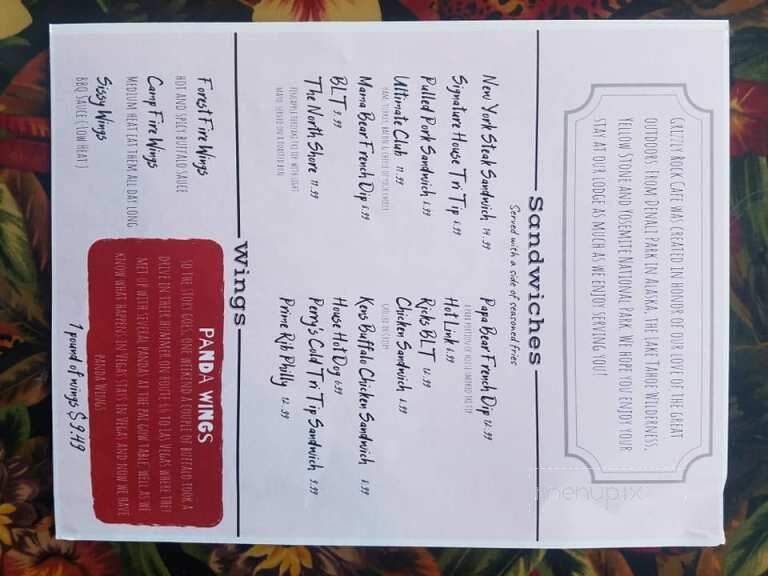 Grizzly Rock Cafe was created in honor of our love of the great
outdoors. From Denali Park in Alaska, the Lake Tahoe Wilderness,
Yellow Stone and Yosemite National Park. We hope you enjoy your
stay at our lodge as much as we enjoy serving you!
Sandwiches
Served with a side of seasoned fries
New York Steak Sandwich 14.99
Signature House Tri Tip 8.99
Pulled Pork Sandwich 8.99
Ultimate Club 11.99
Ham, Turkey, Bacon & Cheese of your choice
Mama Bear French Dip 8.99
BLT 9.99
The North Show 11.99
Mayo, served on a toasted bun
Papa Bear French Dip 12.99
Hot Link 8.99
Ricks BLT 12.99
Chicken Sandwich 8.99
Grilled or Crispy
Kens Buffalo Chicken Sandwich 8.99
House Hot Dog 6.99
Perry's Cold Tri Tip Sandwich 9.99
Prime Rib Philly 12.99
Wings
Forest Fire Wings
Hot and spicy buffalo sauce
Camp Fire Wings
Medium heat eat them all day long
Sissy Wings
BBQ Sauce (low heat)
PANDA WINGS
So the story goes, one weekend a couple of buffalo took a
drive in their Hummer on Route 66 to Las Vegas where they
met up with several panda at the Pai Gow table. Well as we
know what happens in Vegas stays in Vegas and now we have
Panda Wings
1 pound of wings $9.49
menupix